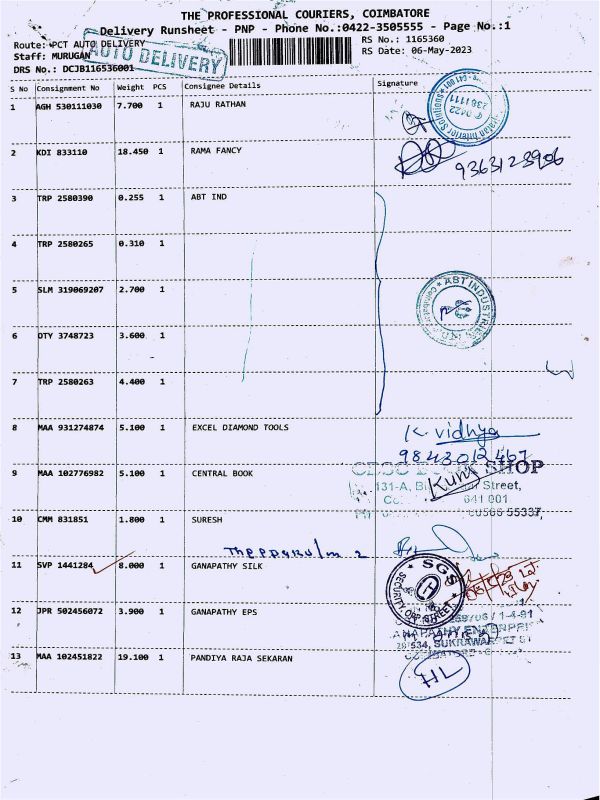 THE PROFESSIONAL COURIERS, COIMBATORE
Delivery Runsheet - PNP - Phone No.:0422-3505555 - Page No.:1
Route: PCT AUTO DELIVERY RS No.: 1165360
Staff: MURUGAN RS Date: 06-May-2023
AUTO DELIVERY
DRS No.: DCJB116536001
S No Consignment No Weight PCS Consignee Details Signature
1 AGH 530111030 7.700 1 RAJU RATHAN
2 KDI 833110 18.450 1 RAMA FANCY
9363123906
3 TRP 2580390 0.255 1 ABT IND
4 TRP 2580265 0.310 1
5 SLM 319069207 2.700 1
ABT INDUSTRIES
6 OTY 3748723 3.600 1
7 TRP 2580263 4.400 1
8 MAA 931274874 5.100 1 EXCEL DIAMOND TOOLS K. Vidhya
9843012467
SHOP
9 MAA 102776982 5.100 1 CENTRAL BOOK
131-A, Street,
641 001
10 CMM 831851 1.800 1 SURESH
11 SVP 1441284 8.000 1 GANAPATHY SILK
SGS
SECURITY, OPP STREET
12 JPR 502456072 3.900 1 GANAPATHY EPS
13 MAA 102451822 19.100 1 PANDIYA RAJA SEKARAN
HL